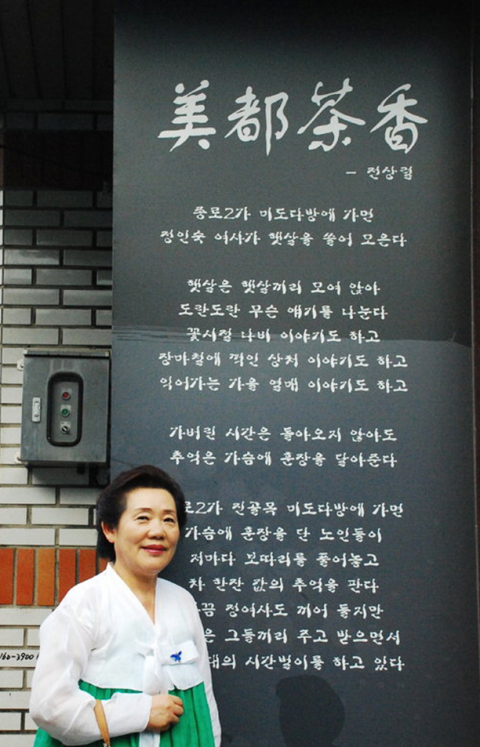 美都茶香
- 전상렬
종로2가 미도다방에 가면
정인숙 여사가 햇살을 쓸어 모은다
햇살은 햇살끼리 모여 앉아
도란도란 무슨 얘기를 나눈다
꽃시절 나비 이야기도 하고
장마철에 꺾인 상처 이야기도 하고
익어가는 가을 열매 이야기도 하고
가버린 시간은 돌아오지 않아도
추억은 가슴에 훈장을 달아준다
로2가 진골목 미도다방에 가면
가슴에 훈장을 단 노인들이
저마다 보따리를 풀어놓고
차 한잔 값의 추억을 판다
끔 정여사도 끼어 들지만
은 그들끼리 주고 받으면서
대의 시간벌이를 하고 있다